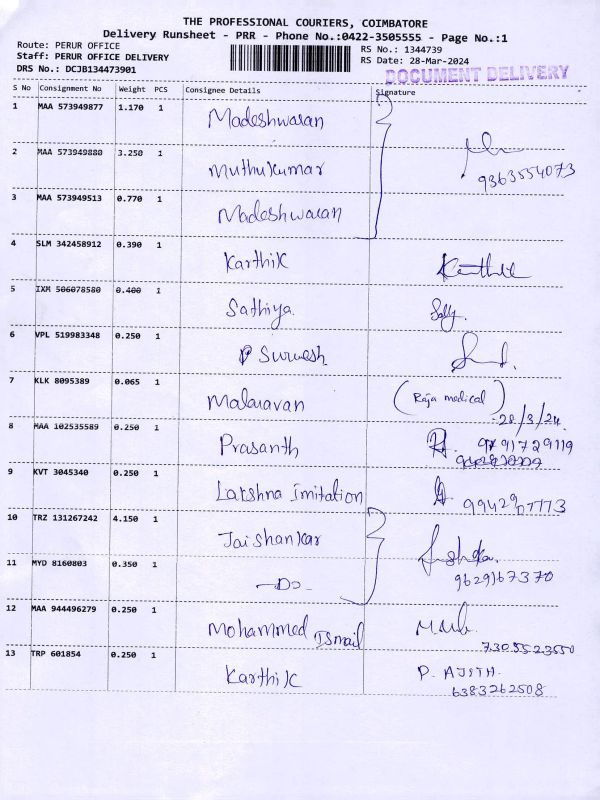 THE PROFESSIONAL COURIERS, COIMBATORE
Delivery Runsheet - PRR - Phone No.:0422-3505555 - Page No.:1
Route: PERUR OFFICE
RS No.: 1344739
Staff: PERUR OFFICE DELIVERY
RS Date: 28-Mar-2024
DRS No.: DCJB134473901
DOCUMENT DELIVERY
S No Consignment No Weight PCS Consignee Details Signature
1 MAA 573949877 1.170 1 Madeshwaran
2 MAA 573949880 3.250 1 Muthukumar 9363554073
3 MAA 573949513 0.770 1 Madeshwaran
4 SLM 342458912 0.390 1 Karthik Karthik
5 IXM 506078580 0.400 1 Sathiya
6 VPL 519983348 0.250 1 Surwesh
7 KLK 8095389 0.065 1 Malaravan (Raja medical)
28/3/24
8 MAA 102535589 0.250 1 Prasanth 9791729119
9 KVT 3045340 0.250 1 Lakshna Imitation 9942907773
10 TRZ 131267242 4.150 1 Jaishankar
11 MYD 8160803 0.350 1 -Do- 9629167370
12 MAA 944496279 0.250 1 Mohammed Ismail
7305523550
13 TRP 601854 0.250 1 Karthik P. AJITH.
6383262508